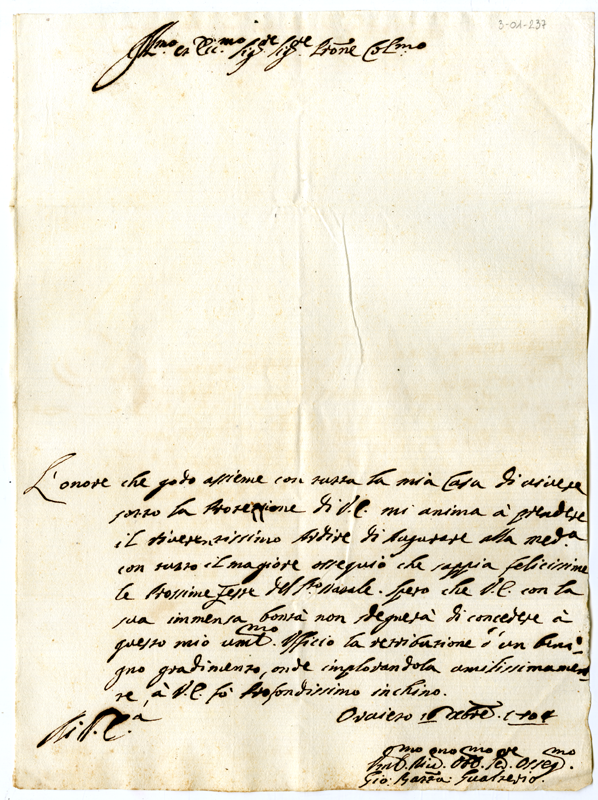 3-01-237
Ill.mo et Ecc.mo Sig.re Sig.re Prone Col.mo
L'onore che godo assieme con tutta la mia Casa di vivere
sotto la Protezzione di V.E. mi anima à prendere
il riverentissimo Ardire di Augurare alla med.a
con tutto il magiore ossequio che sappia felicissime
le Prossime Feste del S.to Natale. Spero che V.E. con la
sua immensa bontà non sdegnerà di concedere à
questo mio um.mo Ufficio la retribuzione d'un beni-
gno gradimento, onde implorandola umilissimamen-
te, à V.E. fò Profondissimo inchino.
Di V.E.
Orvieto Xbre 1704
Um.mo Dev.mo Obb.mo Se.re Osseq.mo
Gio: Batta: Gualterio